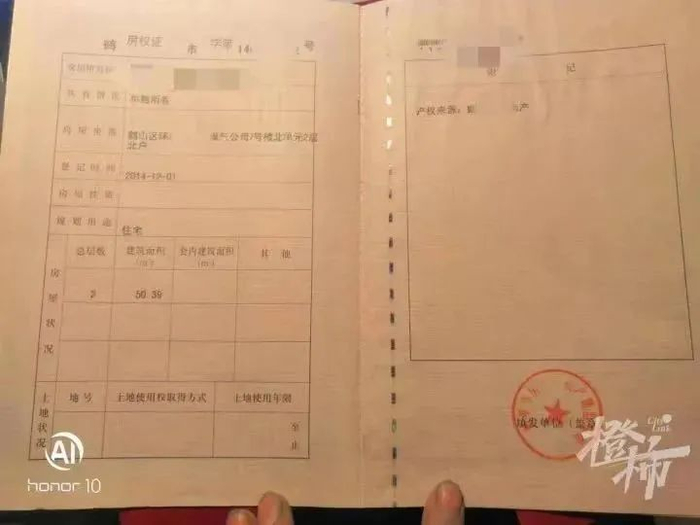 鹤 房权证 市 字第 14 号
房屋所有权人
共有情况
房屋坐落 鹤山区 煤气公司7号楼北单元2层
北户
登记时间 2014-12-01
房屋性质
规划用途 住宅
房屋状况
总层数 建筑面积 套内建筑面积 其 他
(㎡) (㎡)
50.39
土地状况
地 号 土地使用权取得方式 土地使用年限
至
止
附 记
产权来源: 产
填发单位(盖章)
AI
honor 10
City Link
橙柿